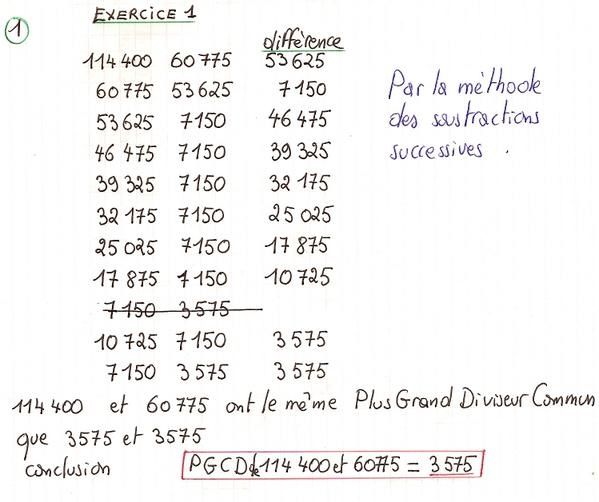 EXERCICE 1
1
différence
114 400 60 775 53 625
60 775 53 625 7 150
53 625 7150 46 475
46 475 7150 39 325
39 325 7150 32 175
32 175 7150 25 025
25 025 7150 17 875
17 875 7150 10 725
7150 3575
10 725 7150 3 575
7150 3575 3 575
Par la méthode
des soustractions
successives.
114 400 et 60 775 ont le même Plus Grand Diviseur Commun
que 3575 et 3575
conclusion PGCD de 114 400 et 60775 = 3 575